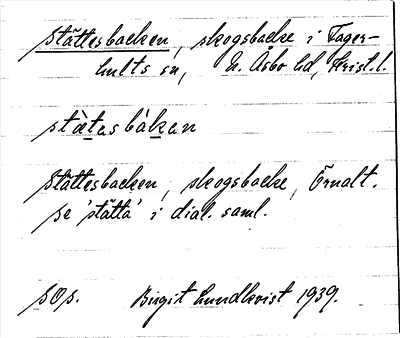 Stättesbacken, skogsbacke i Fager-
hults sn, N. Åsbo hd, Krist.l.
stàtesbàkan
Stättesbacken, skogsbacke, Örnalt.
se 'stätta' i dial. saml.
SOs. Birgit Lundkvist 1939.